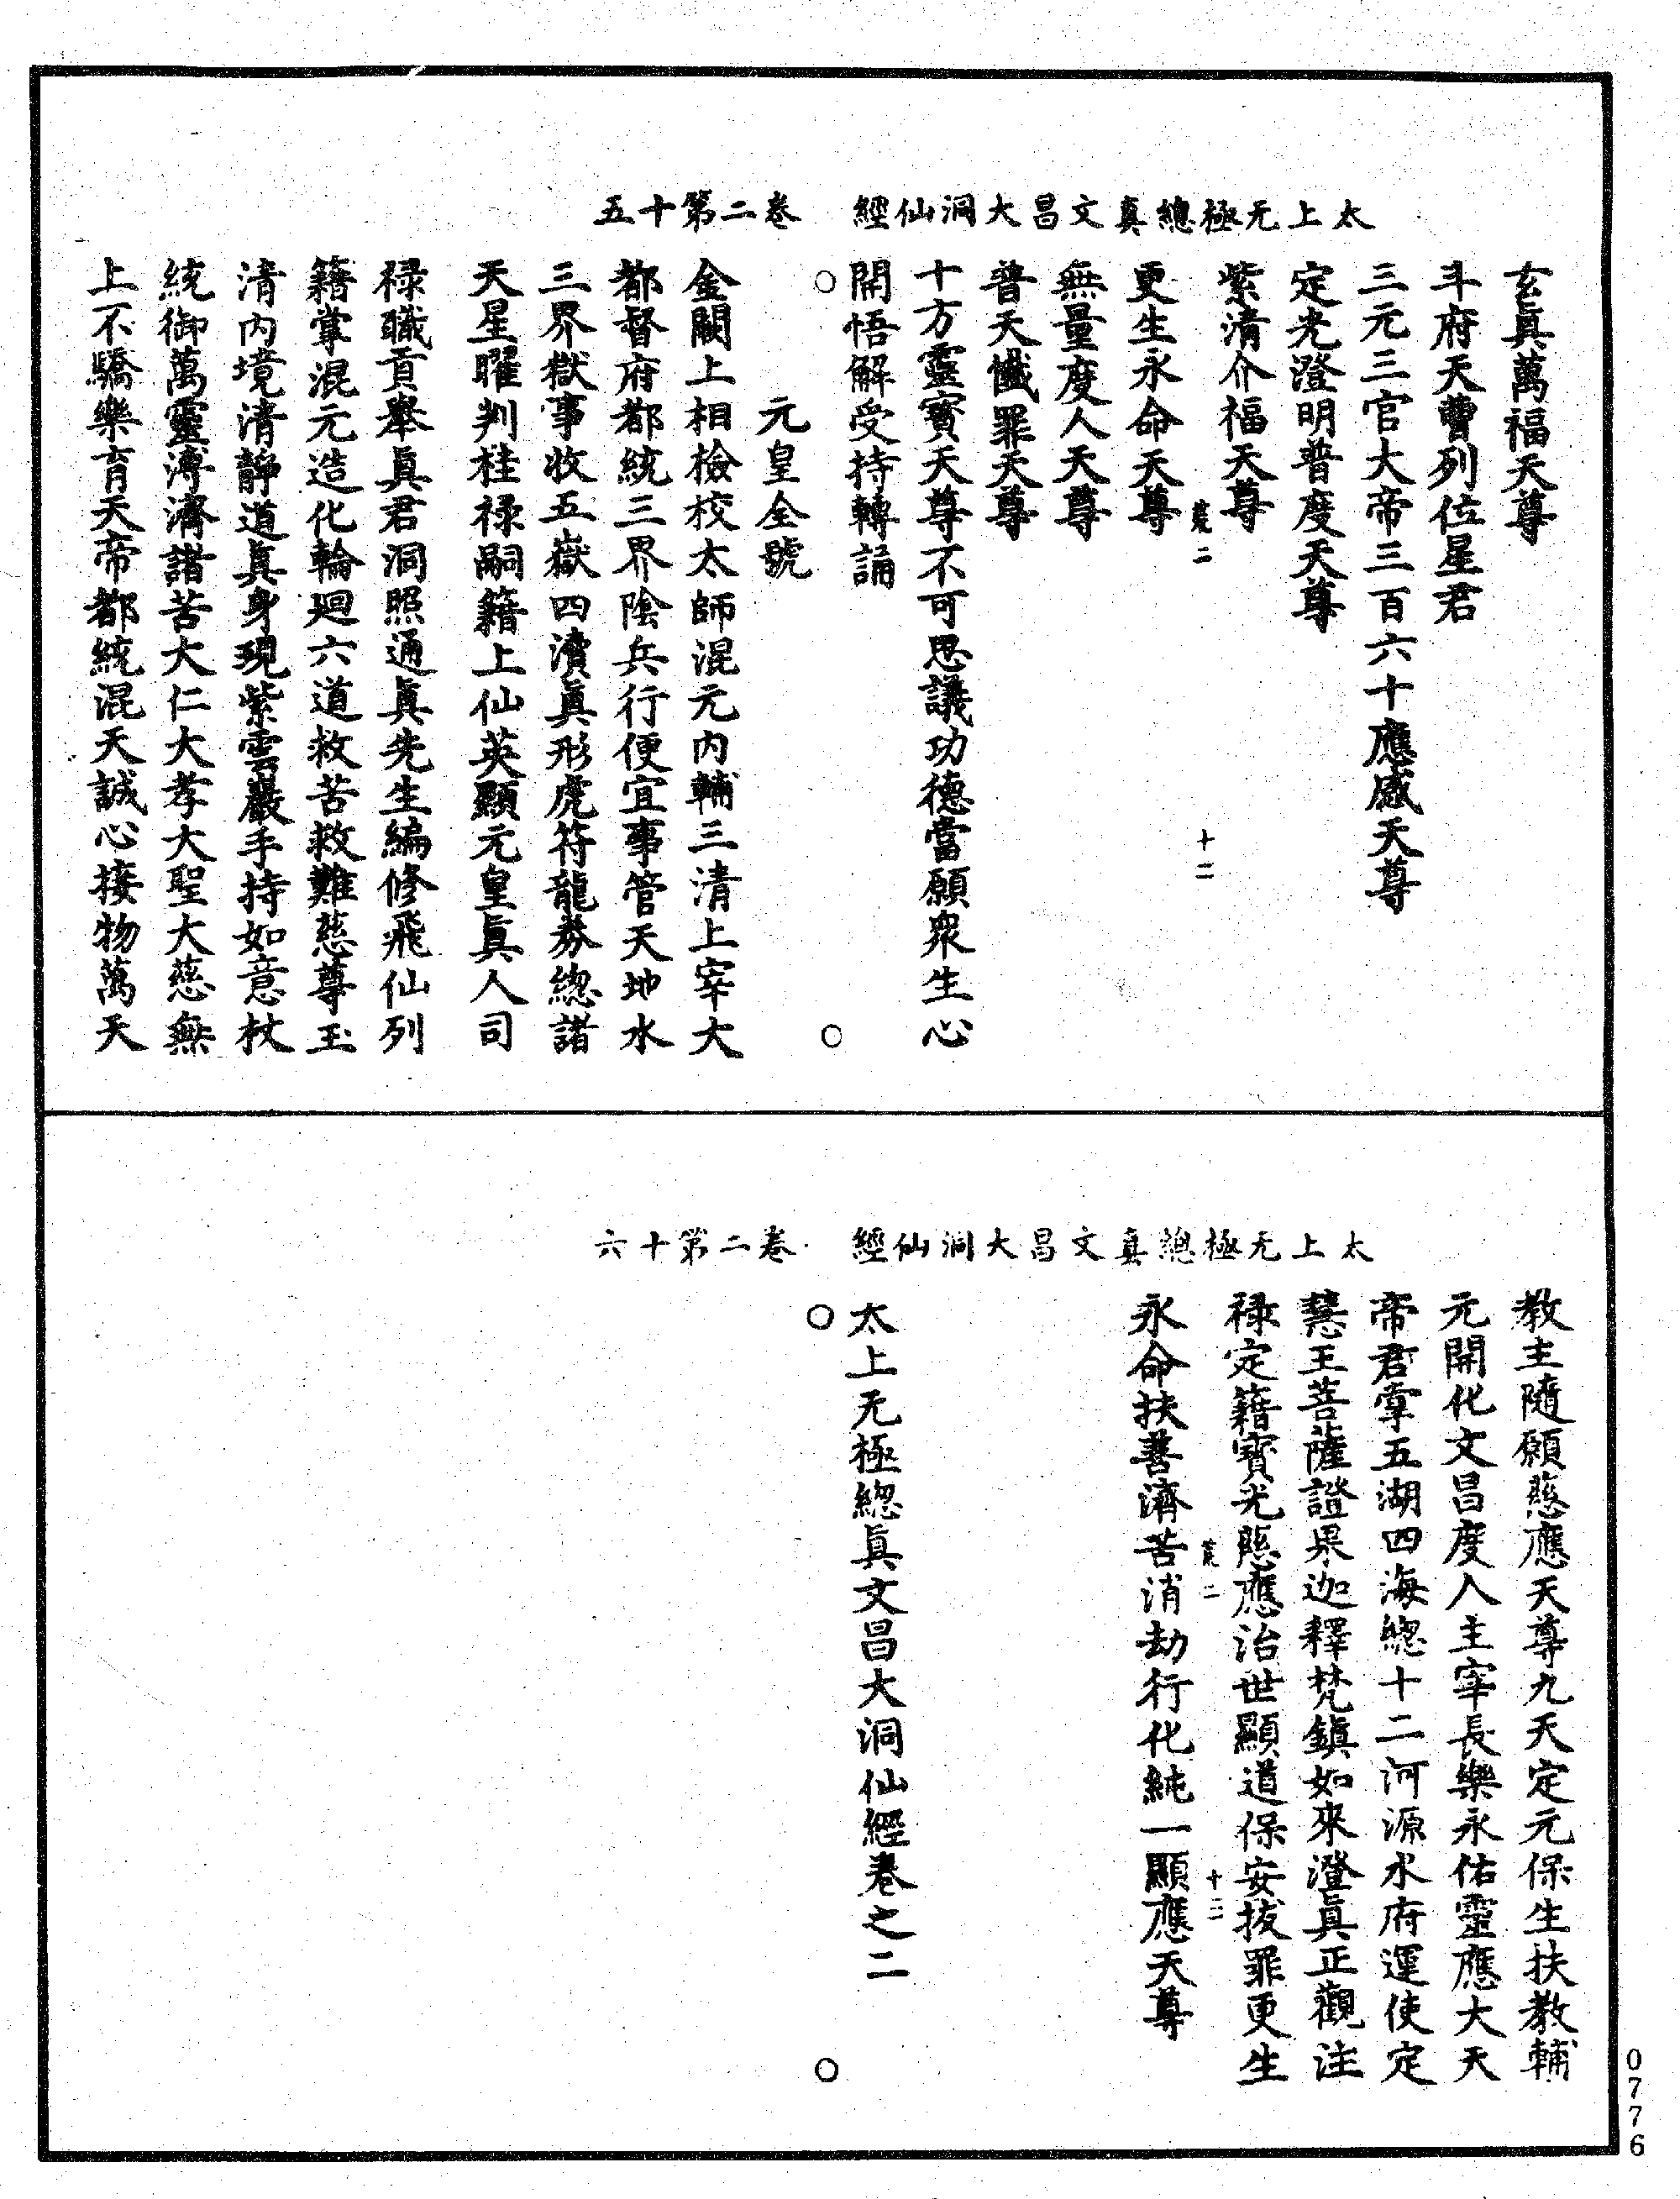 太上无極總真文昌大洞仙經　卷二第十五
玄眞萬福天尊
斗府天曹列位星君
三元三官大帝三百六十應感天尊
定光澄明普度天尊
紫清介福天尊
荒二　十二
更生永命天尊
無量度人天尊
普天懺罪天尊
十方靈寳天尊不可思議功德當願衆生心
開悟解受持轉誦
元皇全號
金闕上相檢校太師混元内輔三清上宰大
都督府都統三界陰兵行便宜事管天地水
三界獄事收五嶽四瀆眞形虎符龍劵總諸
天星曜判桂禄嗣籍上仙英顯元皇眞人司
禄職貢舉眞君洞照通眞先生編修飛仙列
籍掌混元造化輪廻六道救苦救難慈尊玉
清内境清靜道眞身現紫雲巖手持如意杖
統御萬靈溥濟諸苦大仁大孝大聖大慈無
上不驕樂育天帝都統混天誠心接物萬天
太上无極總真文昌大洞仙經　卷二第十六
教主隨願慈應天尊九天定元保生扶教輔
元開化文昌度人主宰長樂永佑靈應大天
帝君掌五湖四海總十二河源水府運使定
慧王菩薩證果迦釋梵鎮如來澄眞正觀注
禄定籍寳光慈應治世顯道保安拔罪更生
荒二　十二
永命扶善濟苦消劫行化純一顯應天尊
太上无極總眞文昌大洞仙經卷之二
0776